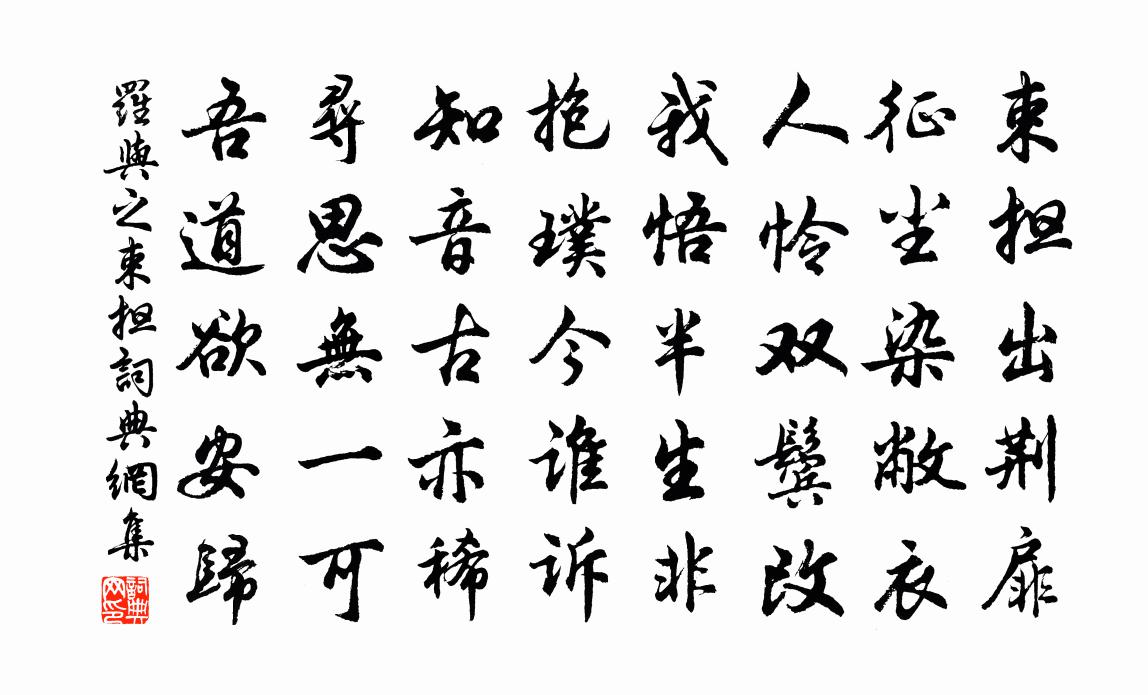 束担出荆扉
征尘染敝衣
人怜双鬓改
我悟半生非
抱璞今谁诉
知音古亦稀
寻思無一可
吾道欲安歸
羅與之束担詞典網集
詞典网印